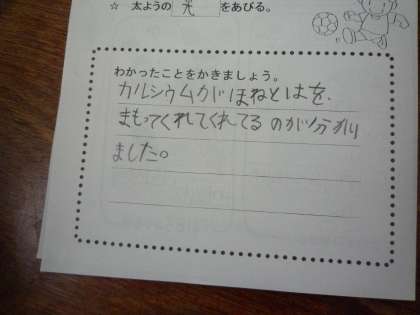 ☆ 太ようの 光 をあびる。
わかったことをかきましょう。
カルシウムがほねとはを、
まもってくれてくれてるのが分かり
ました。